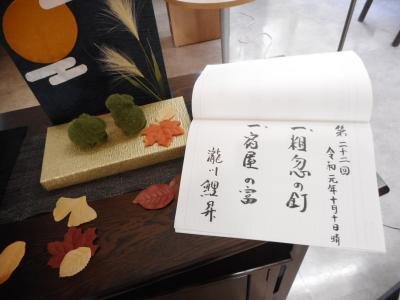 第二十二回
令和元年十月十日晴
一、粗忽の釘
一、宿屋の富
瀧川鯉昇